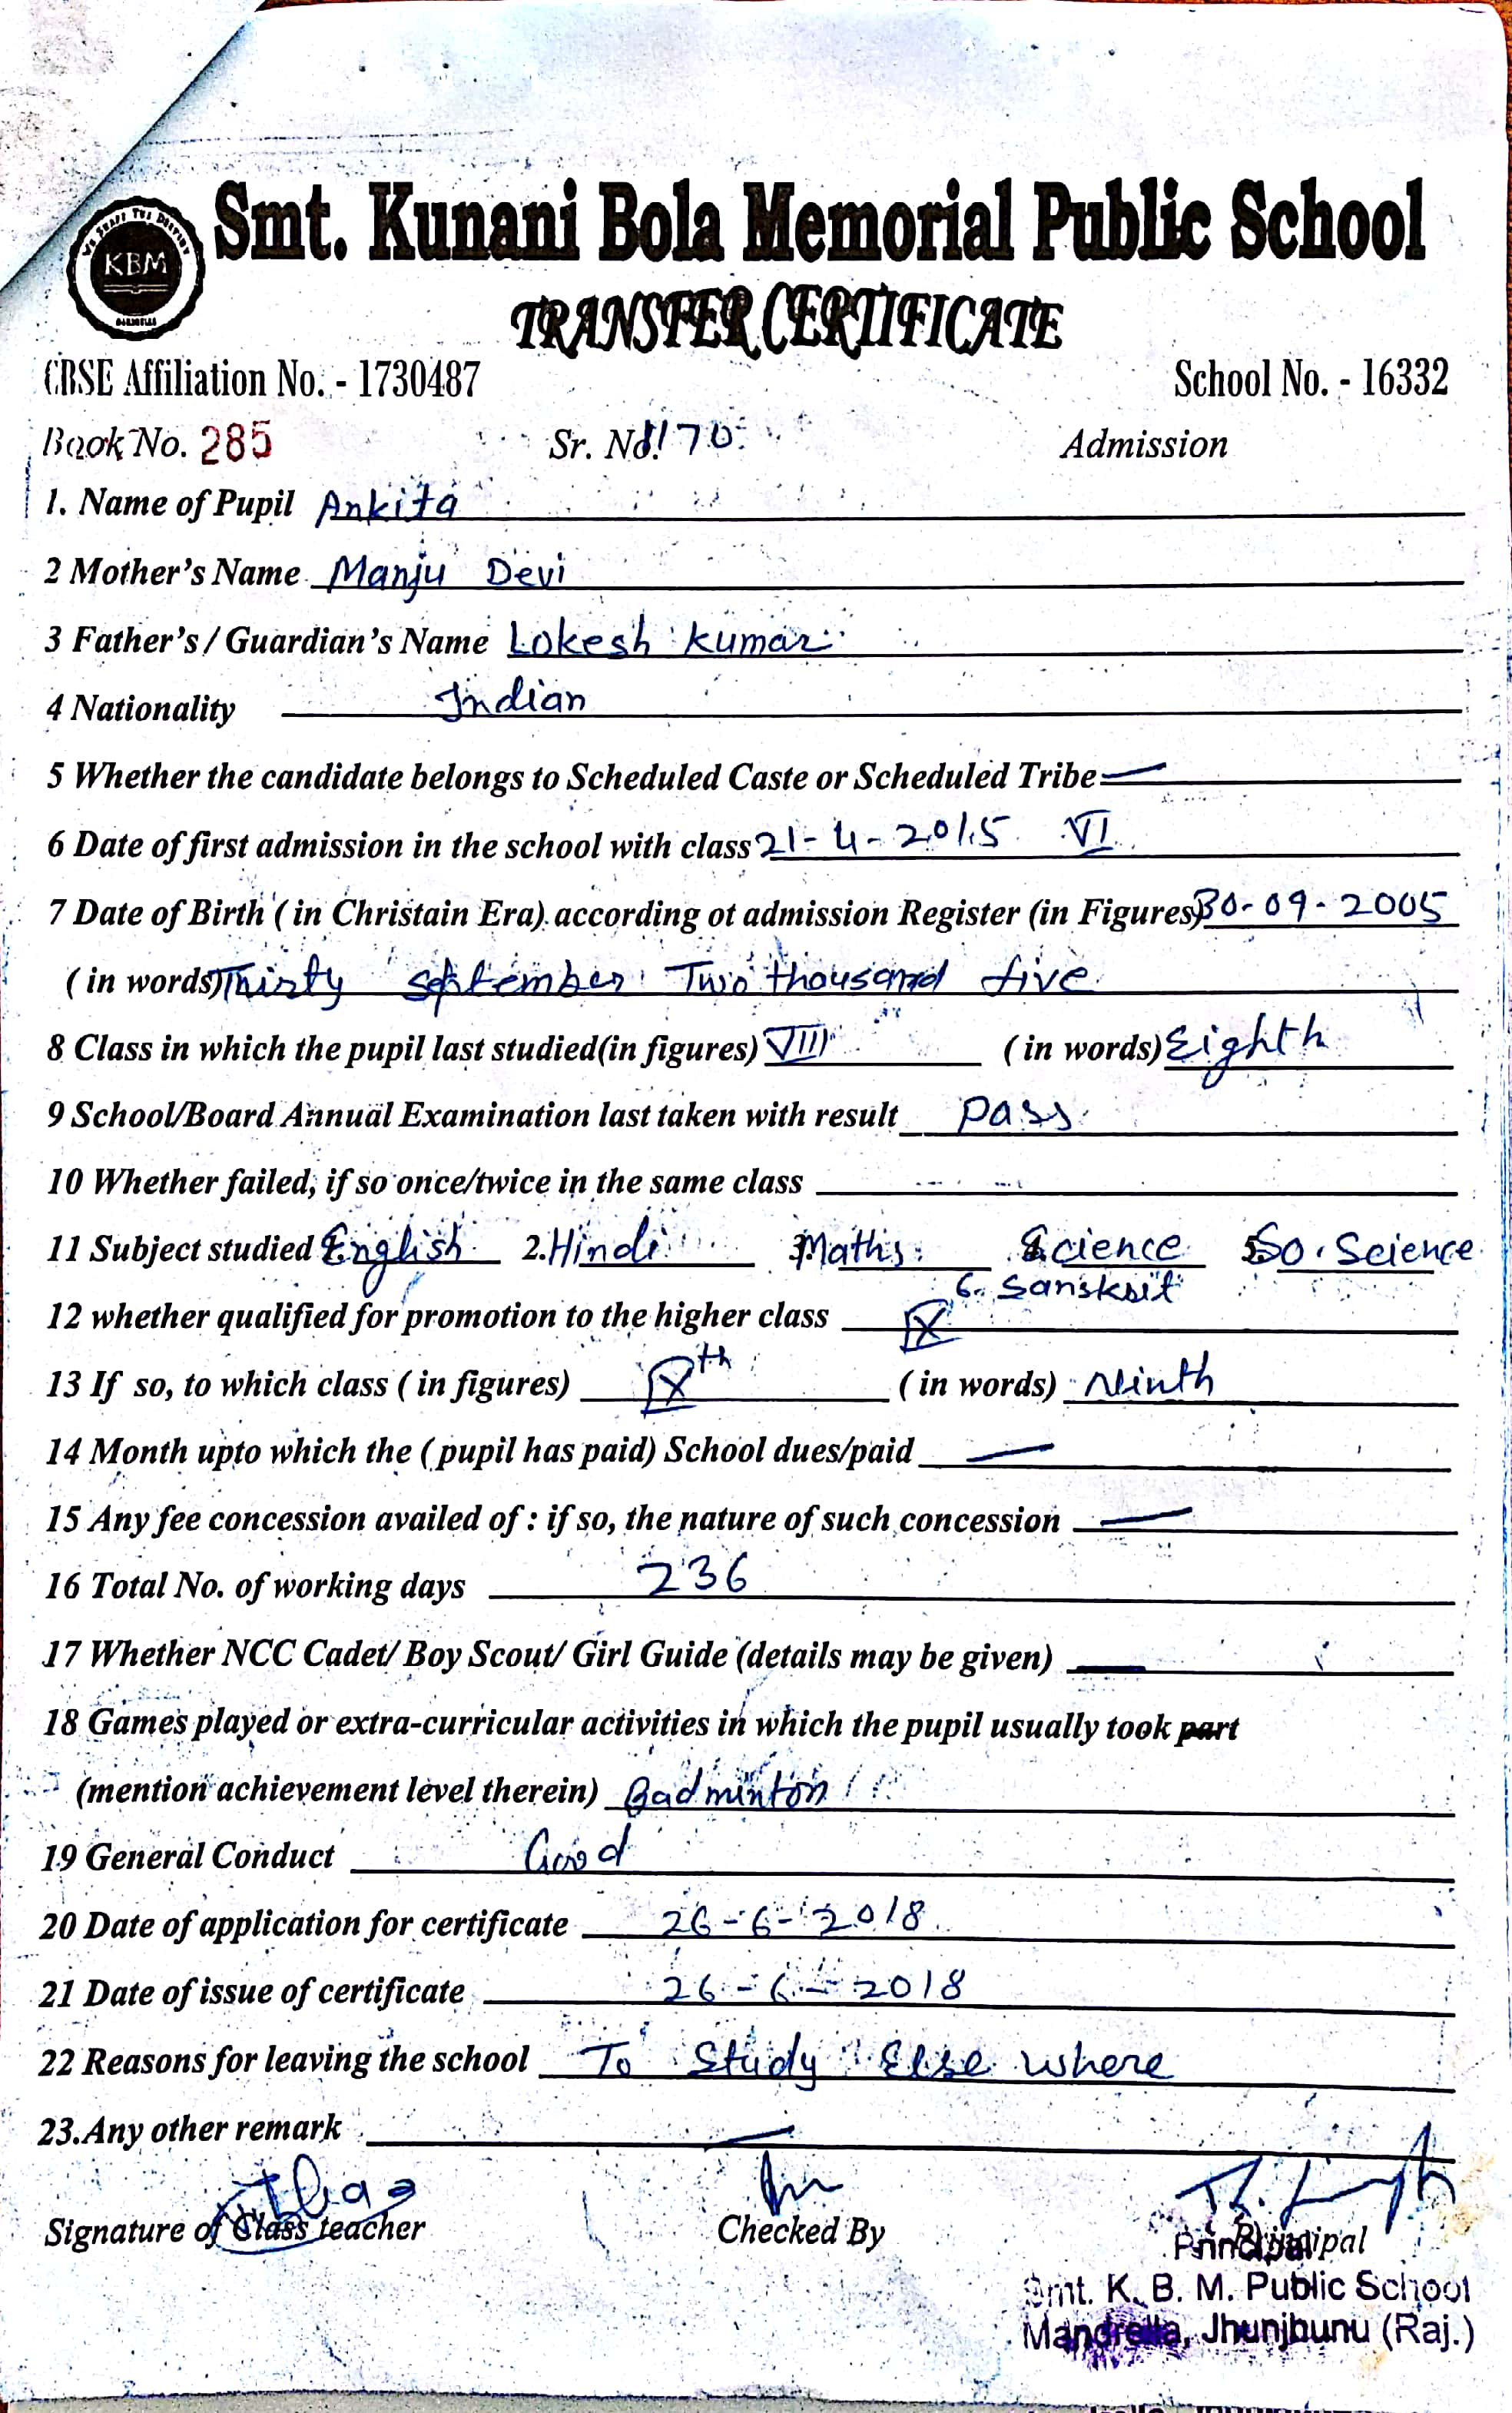 WE SHAPE THE DESTINY
KBM
MANDRELLA
Smt. Kunani Bola Memorial Public School
TRANSFER CERTIFICATE
CBSE Affiliation No. - 1730487 School No. - 16332
Book No. 285 Sr. No. 1170 Admission
1. Name of Pupil Ankita
2 Mother's Name Manju Devi
3 Father's / Guardian's Name Lokesh Kumar
4 Nationality Indian
5 Whether the candidate belongs to Scheduled Caste or Scheduled Tribe —
6 Date of first admission in the school with class 21-4-2015 VI
7 Date of Birth ( in Christain Era) according ot admission Register (in Figures) 30-09-2005
( in words) Thirty september Two thousand five
8 Class in which the pupil last studied(in figures) VIII ( in words) Eighth
9 School/Board Annual Examination last taken with result Pass
10 Whether failed, if so once/twice in the same class
11 Subject studied 1. English 2. Hindi 3. Maths 4. Science 5. So. Science
6. Sanskrit
12 whether qualified for promotion to the higher class IX
13 If so, to which class ( in figures) IXth ( in words) Ninth
14 Month upto which the ( pupil has paid) School dues/paid —
15 Any fee concession availed of : if so, the nature of such concession —
16 Total No. of working days 236
17 Whether NCC Cadet/ Boy Scout/ Girl Guide (details may be given) —
18 Games played or extra-curricular activities in which the pupil usually took part
(mention achievement level therein) Badminton
19 General Conduct Good
20 Date of application for certificate 26-6-2018
21 Date of issue of certificate 26-6-2018
22 Reasons for leaving the school To Study Else where
23.Any other remark —
Signature of Class teacher Checked By Principal
Principal
Smt. K. B. M. Public School
Mandrella, Jhunjhunu (Raj.)